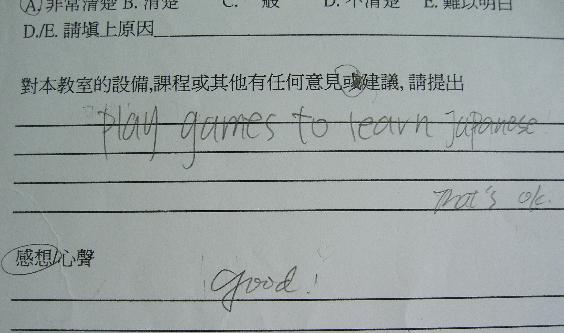 A. 非常清楚 B. 清楚 C. 一般 D. 不清楚 E. 難以明白
D./E. 請填上原因
對本教室的設備,課程或其他有任何意見或建議, 請提出
play games to learn japanese
that's ok.
感想/心聲
good!